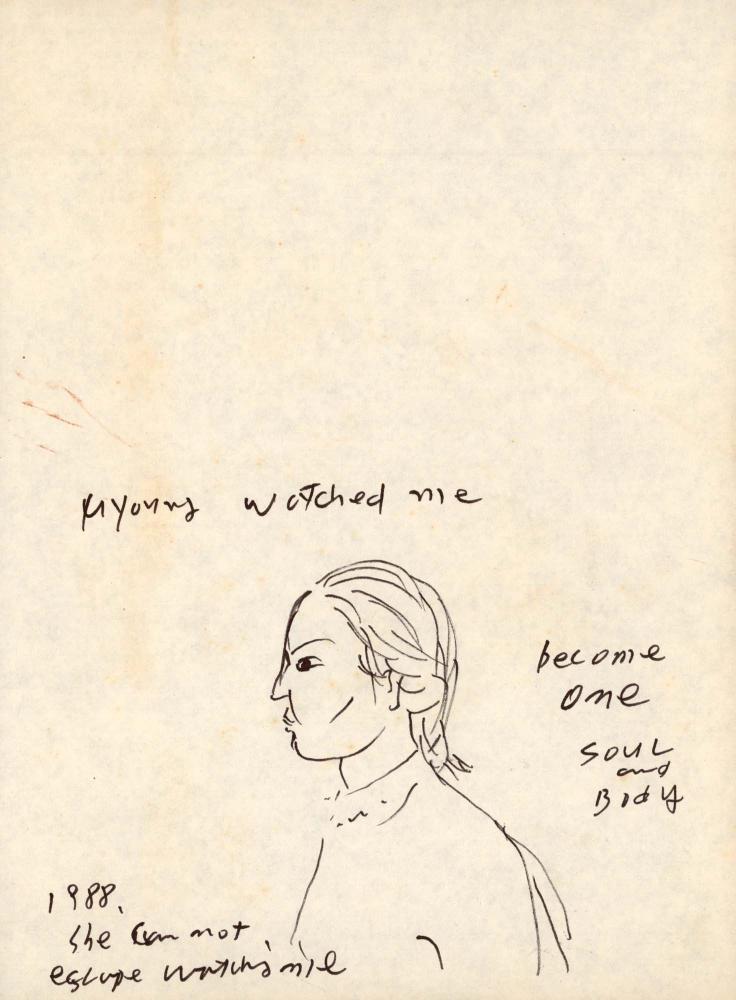 Myoung watched me
become
one
SOUL
and
BODY
1988.
she can not
escape watching me